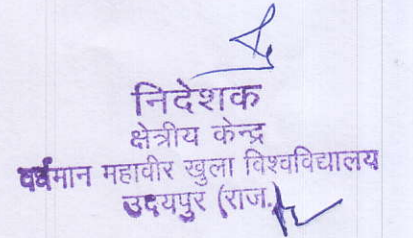 निदेशक
क्षेत्रीय केन्द्र
वर्धमान महावीर खुला विश्वविद्यालय
उदयपुर (राज.)